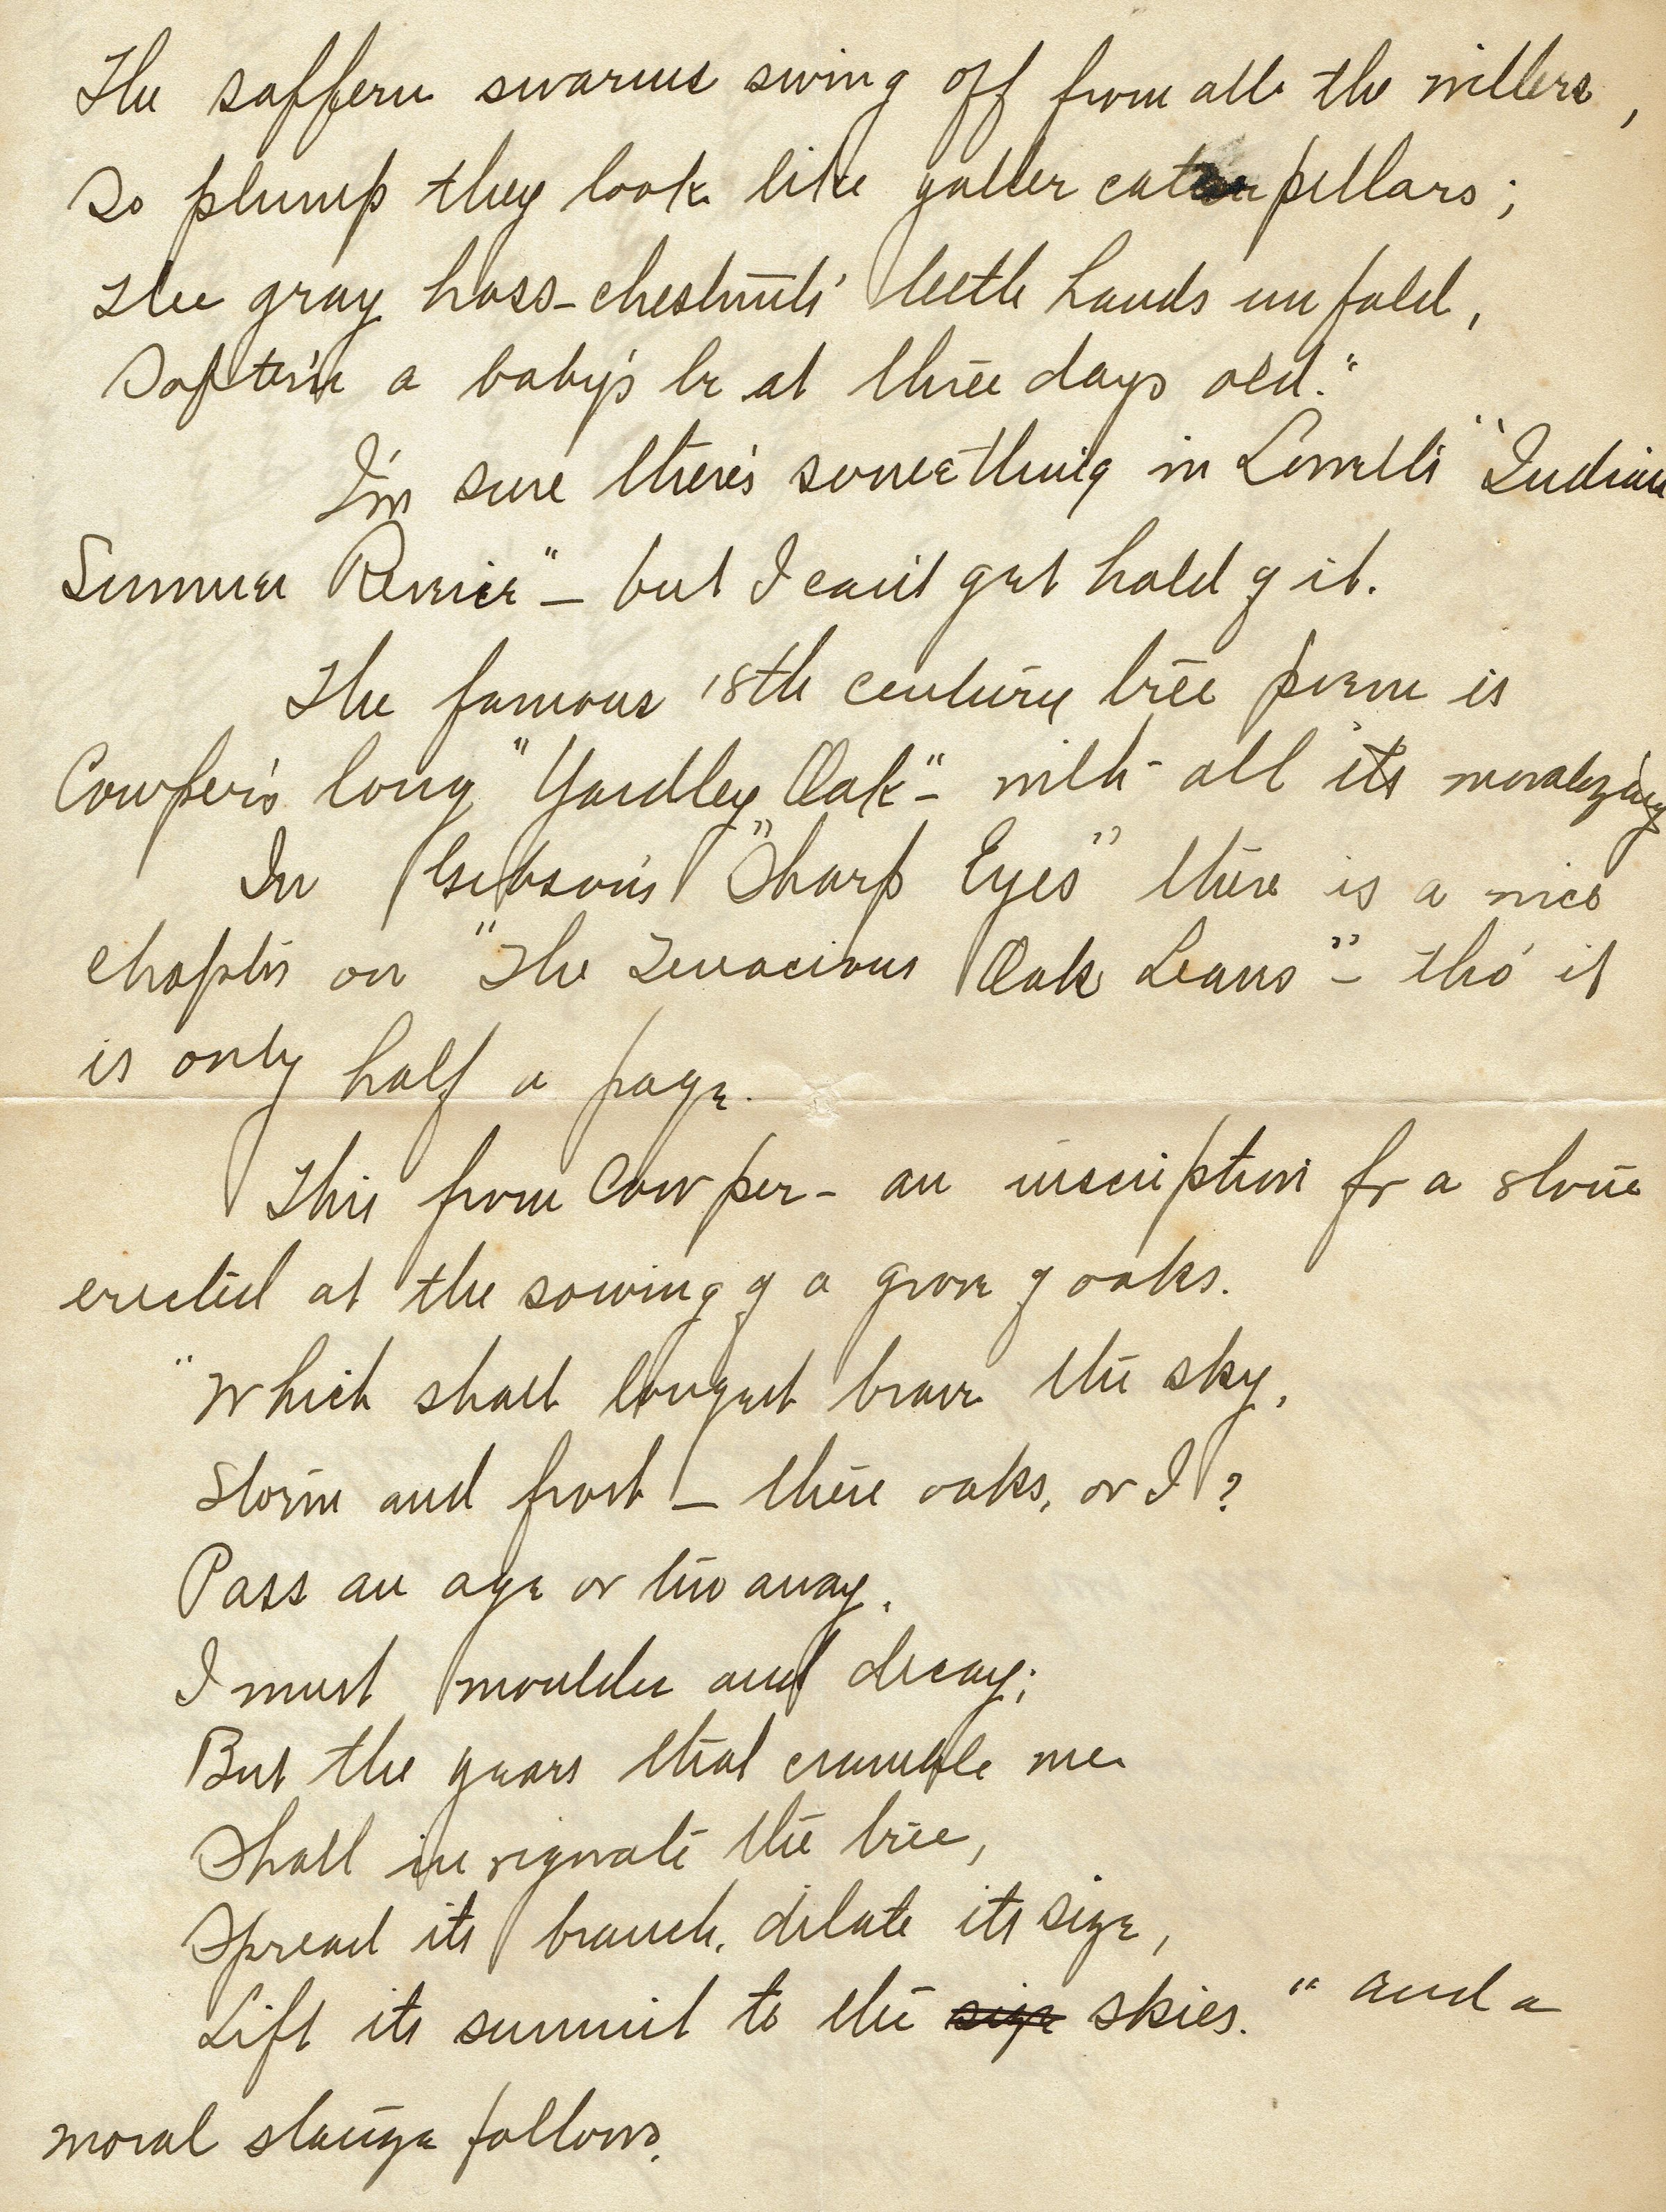 The saffern swarms swing off from all the willers,
So plump they look like yaller caterpillars;
The gray hoss-chestnuts' leetle hands unfold,
Softer'n a baby's be at three days old."
I'm sure there's something in Lowell's "Indian
Summer Reverie" – but I can't get hold of it.
The famous 18th century tree poem is
Cowper's long "Yardley Oak" – with all its moralizing
In Gibson's "Sharp Eyes" there is a nice
chapter on "The Tenacious Oak Leaves" – tho' it
is only half a page.
This from Cowper – an inscription for a stone
erected at the sowing of a grove of oaks.
"Which shall longest brave the sky,
Storm and frost – these oaks, or I?
Pass an age or two away,
I must moulder and decay;
But the years that crumble me
Shall invigorate the tree,
Spread its branch, dilate its size,
Lift its summit to the size skies." and a
moral stanza follows.